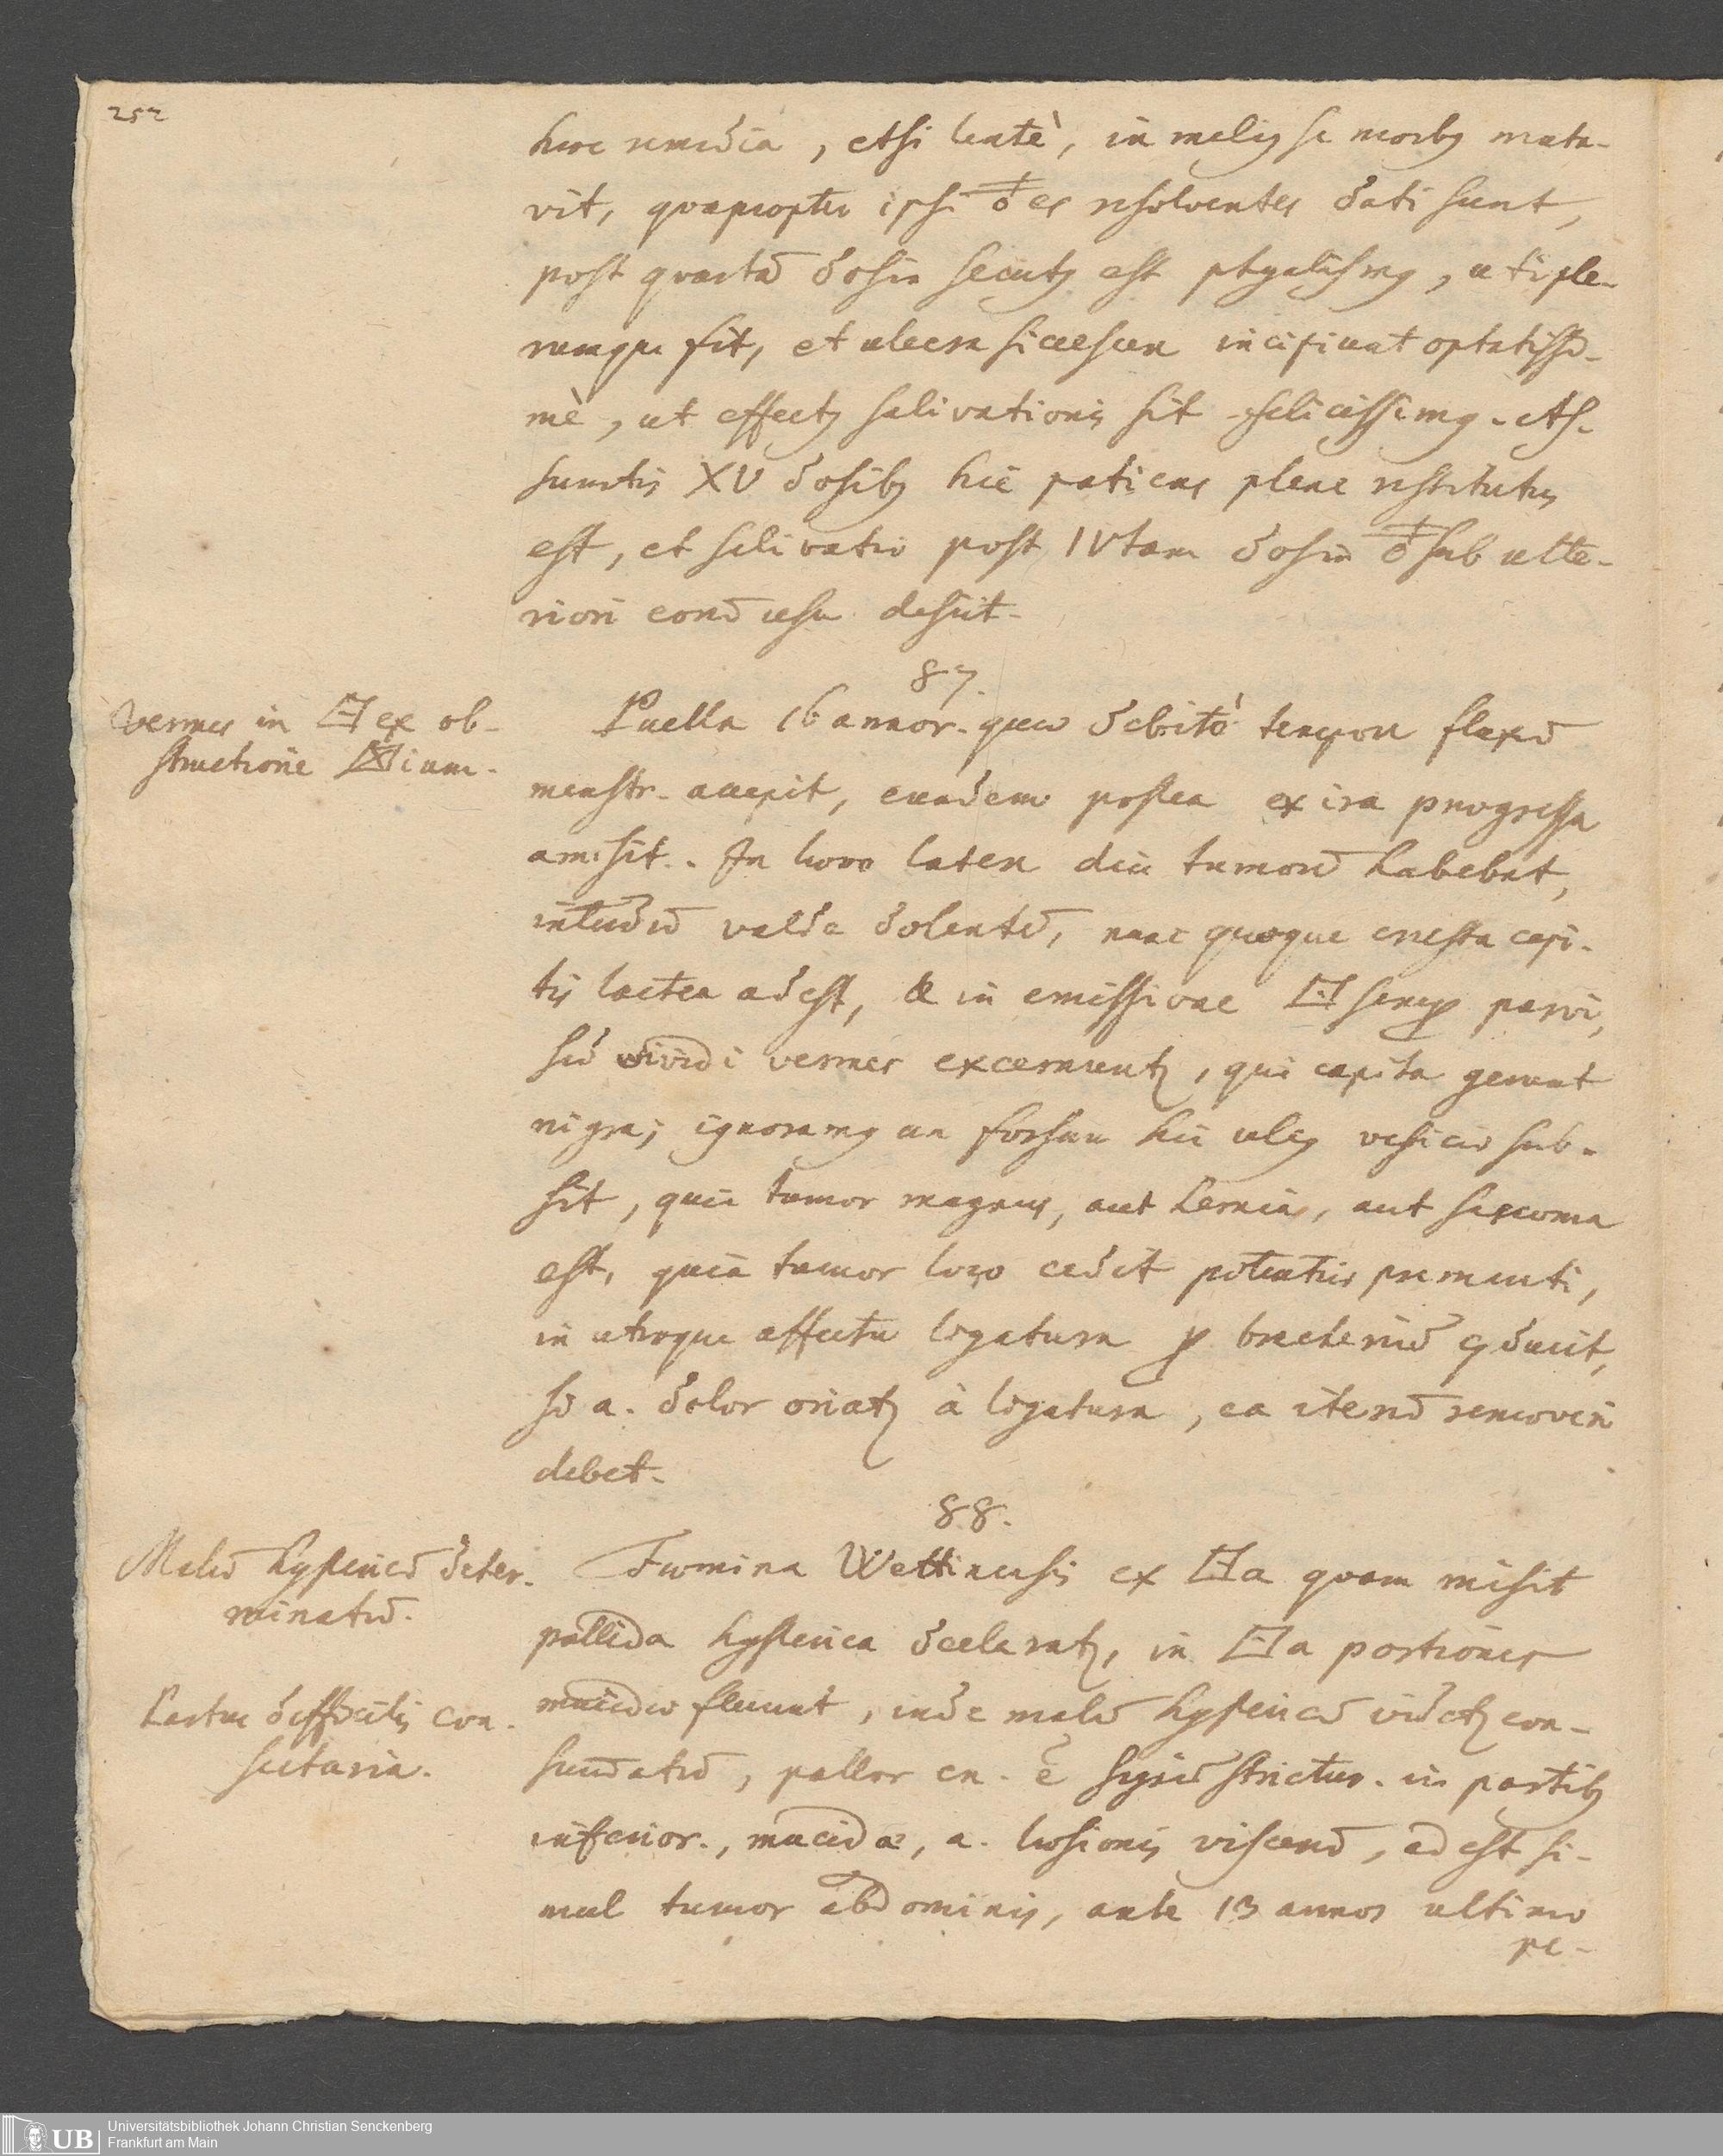 252
hæc remedia, etsi lentè, in meliꝰ se morbꝰ muta-
vit, quapropter ipsi ♁es resolventes dati sunt,
post quartā dosin secutꝰ est ptyalismꝰ, uti ple-
rumque fit, et ulcera siccescere incipiunt optatissi-
mè, ut effectꝰ salivationis sit felicissimꝰ. As-
sumtis XV dosibꝰ hic patiens plene restitutus
est, et salivatio post IVtam dosin ♁ sub ulte-
riori eorū usu desiit.
87.
Vermes in □ ex ob-
structione ium.
Puella 16 annor. quæ debitò tempore fluxū
menstr. accepit, eundem postea ex ira progressa
amisit. In lævo latere diu tumorē habebat,
interdū valde dolentē, nunc quoque crusta capi-
tis lactea adest, & in emissione □ semp parvi,
sed vividi vermes excernuntꝰ, qui capita gerunt
nigra; ignoramꝰ an forsan hic ulcꝰ vesicæ sub-
sit, quia tumor magnus, aut hernia, aut sarcoma
est, quia tumor loco cedit potentius prementi,
in utroque affectu ligatura p bracherium cꝰducit,
sed a. dolor oriatꝰ à ligatura, ea iterū removeri
debet.
88.
Malū hystericū deter-
minatū.
Partus difficilis con-
sectaria.
Fœmina Wettinensis ex □a quam misit
pallida hysterica declaratꝰ, in □a portiones
mucidæ fluunt, inde malū hystericū videtꝰ con-
firmatū, pallor en. ē signū strictur. in partibꝰ
inferior., mucidæ, a. læsionis viscerū, adest si-
mul tumor abdominis, ante 13 annos ultimo
pe-
Universitätsbibliothek Johann Christian Senckenberg
Frankfurt am Main
UB